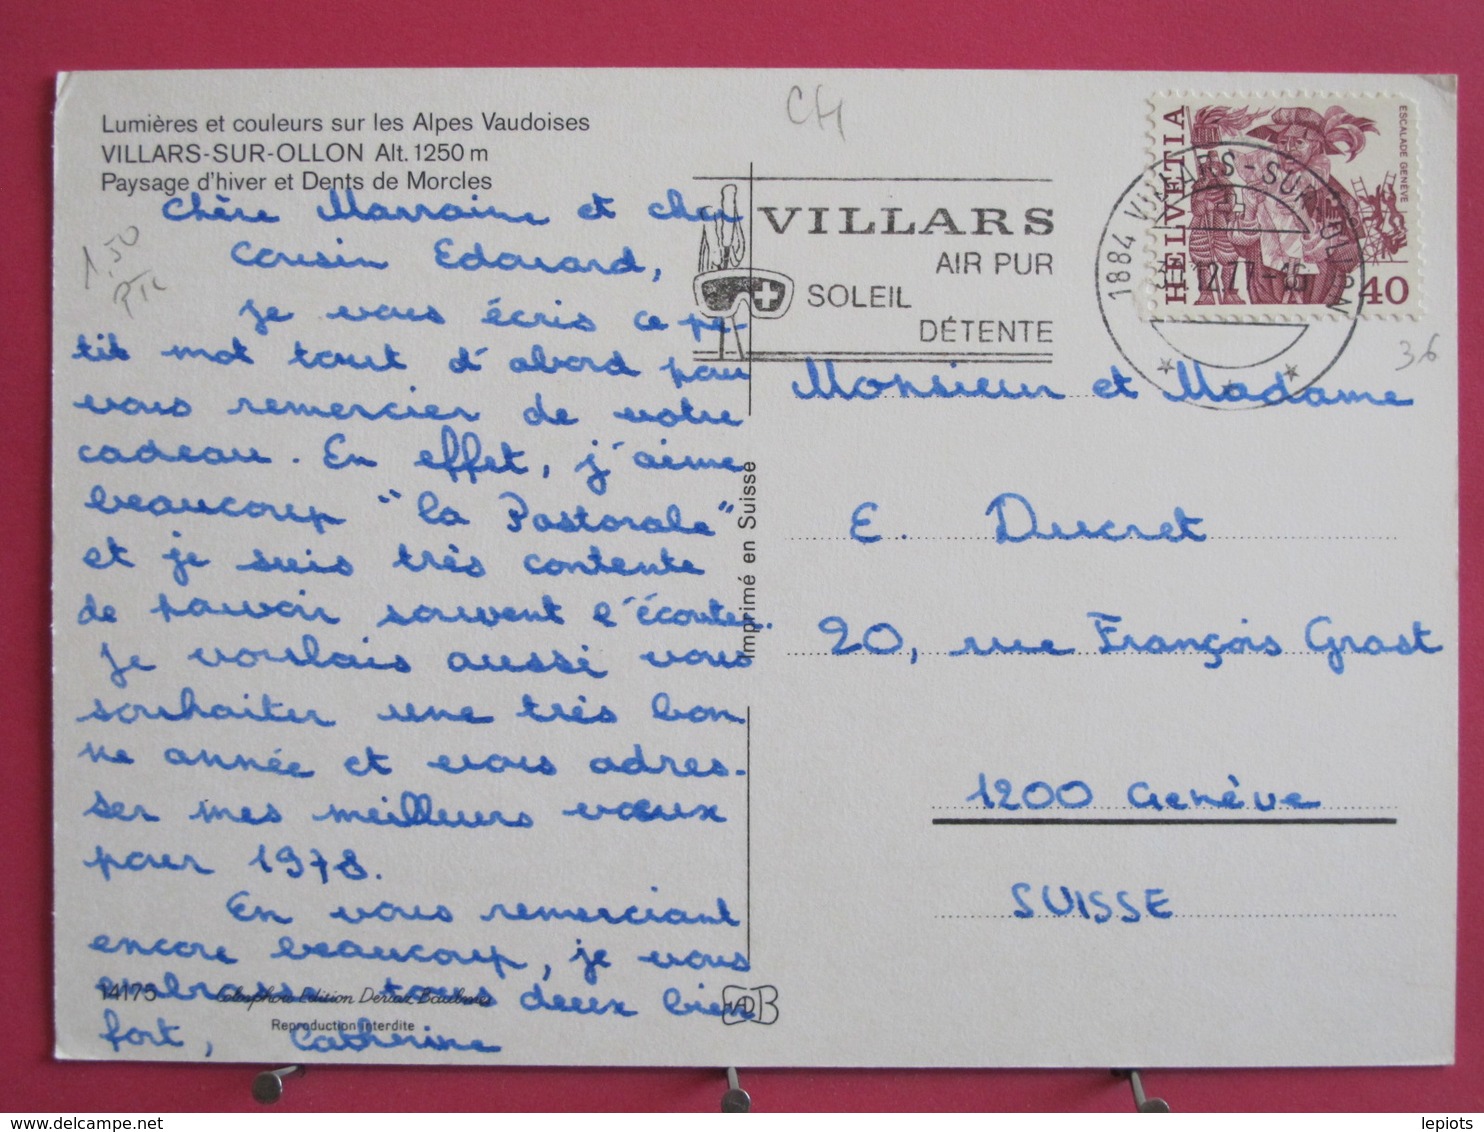 Lumières et couleurs sur les Alpes Vaudoises
VILLARS-SUR-OLLON Alt. 1250 m
Paysage d'hiver et Dents de Morcles
1,50
Chère Marraine et cher
Cousin Edouard,
je vous écris ce pe-
tit mot tout d'abord pour
vous remercier de votre
cadeau. En effet, j'aime
beaucoup "la Pastorale"
et je suis très contente
de pouvoir souvent l'écouter.
Je voulais aussi vous
souhaiter une très bon
ne année et vous adres-
ser mes meilleurs vœux
pour 1978.
En vous remerciant
encore beaucoup, je vous
embrasse tous deux bien
fort, Catherine
14175
Colorphot Edition Deriaz Baulmes
Reproduction interdite
Imprimé en Suisse
ADB
CH
VILLARS
AIR PUR
SOLEIL
DÉTENTE
1884 VILLARS-SUR-OLLON
31.12.77-15
HELVETIA
ESCALADE GENÈVE
40
3.6
Monsieur et Madame
E. Ducret
20, rue François Grast
1200 Genève
SUISSE
lepiots